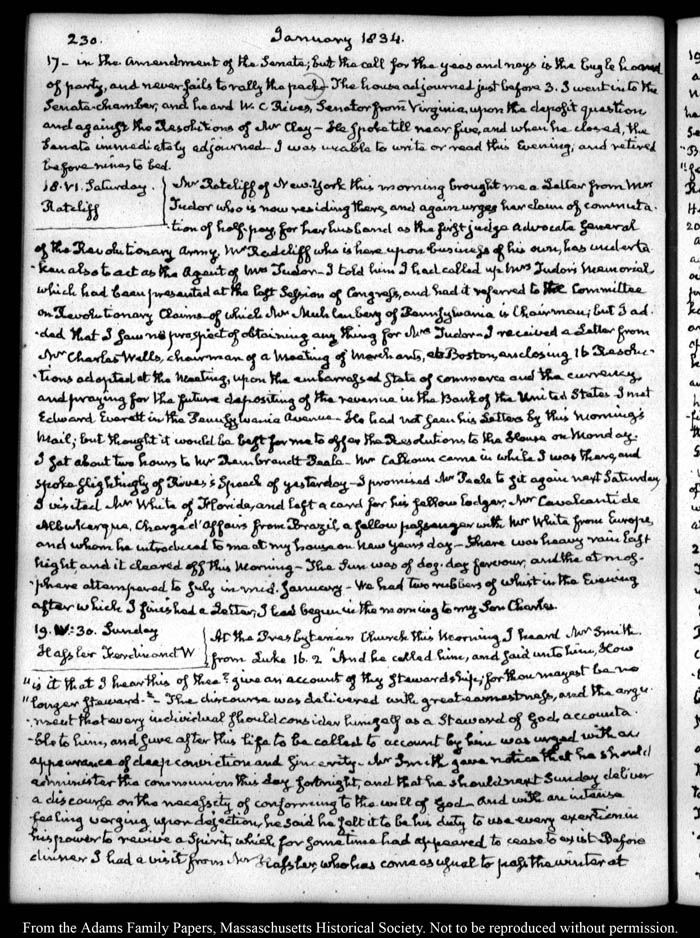 230.
January 1834.
17 – in the Amendment of the Senate; but the call for the yeas and nays is the bugle horn
of party, and never fails to rally the pack – The house adjourned just before 3. I went into the
Senate-chamber, and heard W. C Rives, Senator from Virginia, upon the deposit question
and against the Resolutions of Mr Clay – He spoke till near five, and when he closed, the
Senate immediately adjourned – I was unable to write or read this Evening, and retired
before nine to bed.
18. VI. Saturday.
Ratcliff
Mr Ratcliff of New-York this morning brought me a Letter from Mrs
Tudor who is now residing there, and again urges her claim of commuta-
tion of half-pay, for her husband as the first judge Advocate General
of the Revolutionary Army. Mr Radcliff who is here upon business of his own, has underta-
ken also to act as the Agent of Mrs Tudor – I told him I had called up Mrs Tudor's Memorial
which had been presented at the last Session of Congress, and had it referred to the Committee
on Revolutionary Claims of which Mr Muhlenberg of Pennsylvania is Chairman; but I ad-
ded that I saw no prospect of obtaining any thing for Mrs Tudor – I received a Letter from
Mr Charles Wells, chairman of a Meeting of Merchants, at Boston, enclosing 16 Resolu-
tions adopted at the Meeting, upon the embarrassed State of commerce and the currency
and praying for the future depositing of the revenue in the Bank of the United States I met
Edward Everett in the Pennsylvania Avenue – He had not seen his Letters by this Morning's
Mail; but thought it would be best for me to offer the Resolutions to the House on Monday.
I sat about two hours to Mr Rembrandt Peale – Mr Calhoun came in while I was there, and
spoke slightingly of Rives's Speech of yesterday – I promised Mr Peale to sit again next Saturday
I visited Mr White of Florida, and left a card for his fellow lodger, Mr Cavalcanti de
Albuquerque, Chargé d'Affairs from Brazil, a fellow passenger with Mr White from Europe,
and whom he introduced to me at my house on New Years day – There was heavy rain last
night and it cleared off this Morning – The Sun was of dog-day fervour, and the atmos-
phere attempered to July in mid-January – We had two rubbers of whist in the Evening
after which I finished a Letter, I had begun in the morning to my Son Charles.
19. IV:30. Sunday
Hassler Ferdinand W
At the Presbyterian Church this Morning I heard Mr Smith
from Luke 16.2 "And he called him, and said unto him, How
"is it that I hear this of thee? give an account of thy Stewardship; for thou mayest be no
"longer Steward." – The discourse was delivered with great earnestness, and the argu-
ment that every individual should consider himself as a Steward of God, accounta-
ble to him, and sure after this life to be called to account by him was urged with an
appearance of deep conviction and sincerity – Mr Smith gave notice that he should
administer the communion this day fortnight, and that he should next Sunday deliver
a discourse on the necessity of conforming to the will of God – And with an intense
feeling verging upon dejection, he said he felt it to be his duty to use every exertion in
his power to revive a Spirit, which for some time had appeared to cease to exist Before
dinner I had a visit from Mr Hassler, who has come as usual to pass the winter at
From the Adams Family Papers, Massachusetts Historical Society. Not to be reproduced without permission.